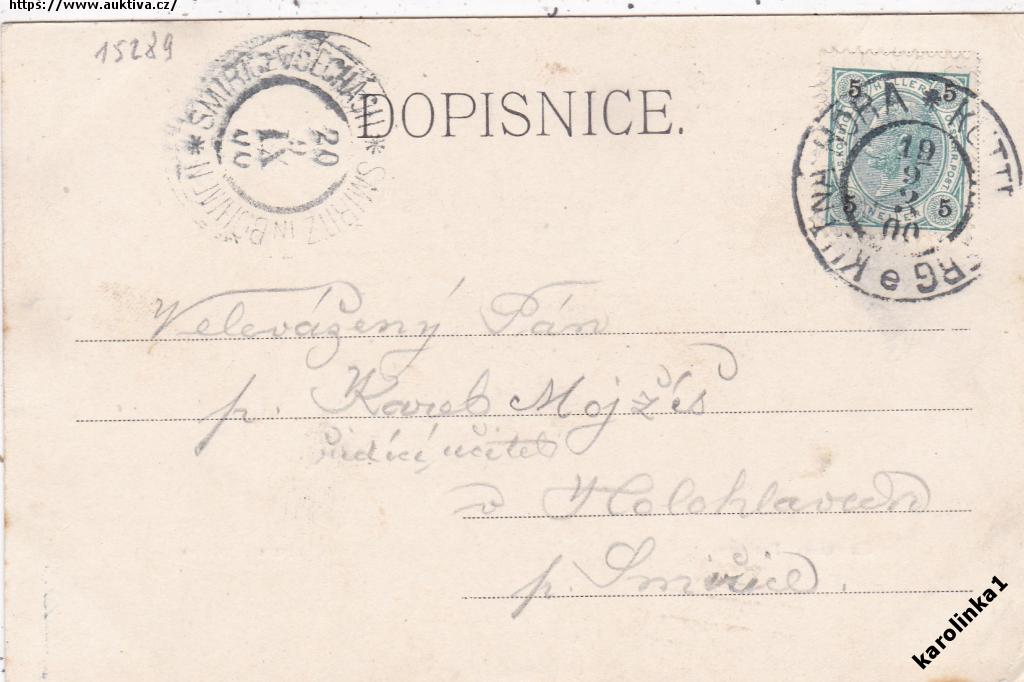 https://www.auktiva.cz/
15289
SMIŘICE V ČECHÁCH * SMIRITZ IN BÖHMEN *
20
IX
00
DOPISNICE.
5 HELLER 5
5 HELLER 5
KUTNÁ HORA * KUTTENBERG e
19
9
00
Velevážený Pán
p. Karel Mojžís
řídící učitel
v Holohlavech
p. Smiřice.
karolinka1